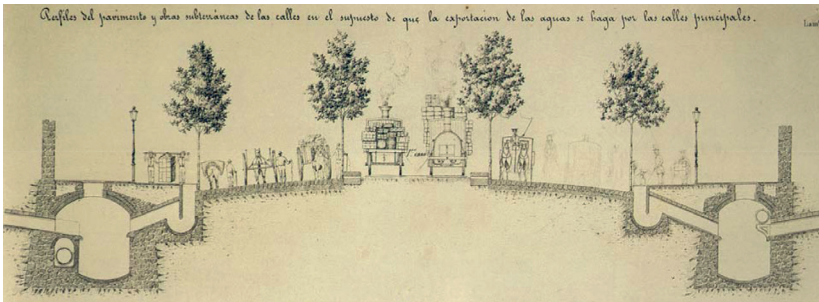 Perfiles del pavimento y obras subterráneas de las calles en el supuesto de que la exportacion de las aguas se haga por las calles principales.